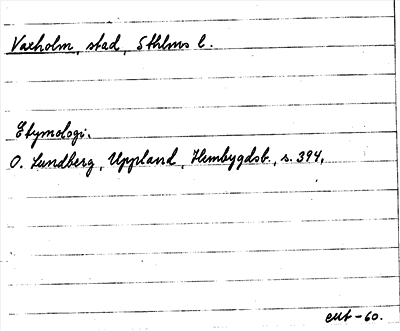 Vaxholm, stad, Sthlms l.
Etymologi.
O. Lundberg, Uppland, Hembygdsb., s. 394.
-60.